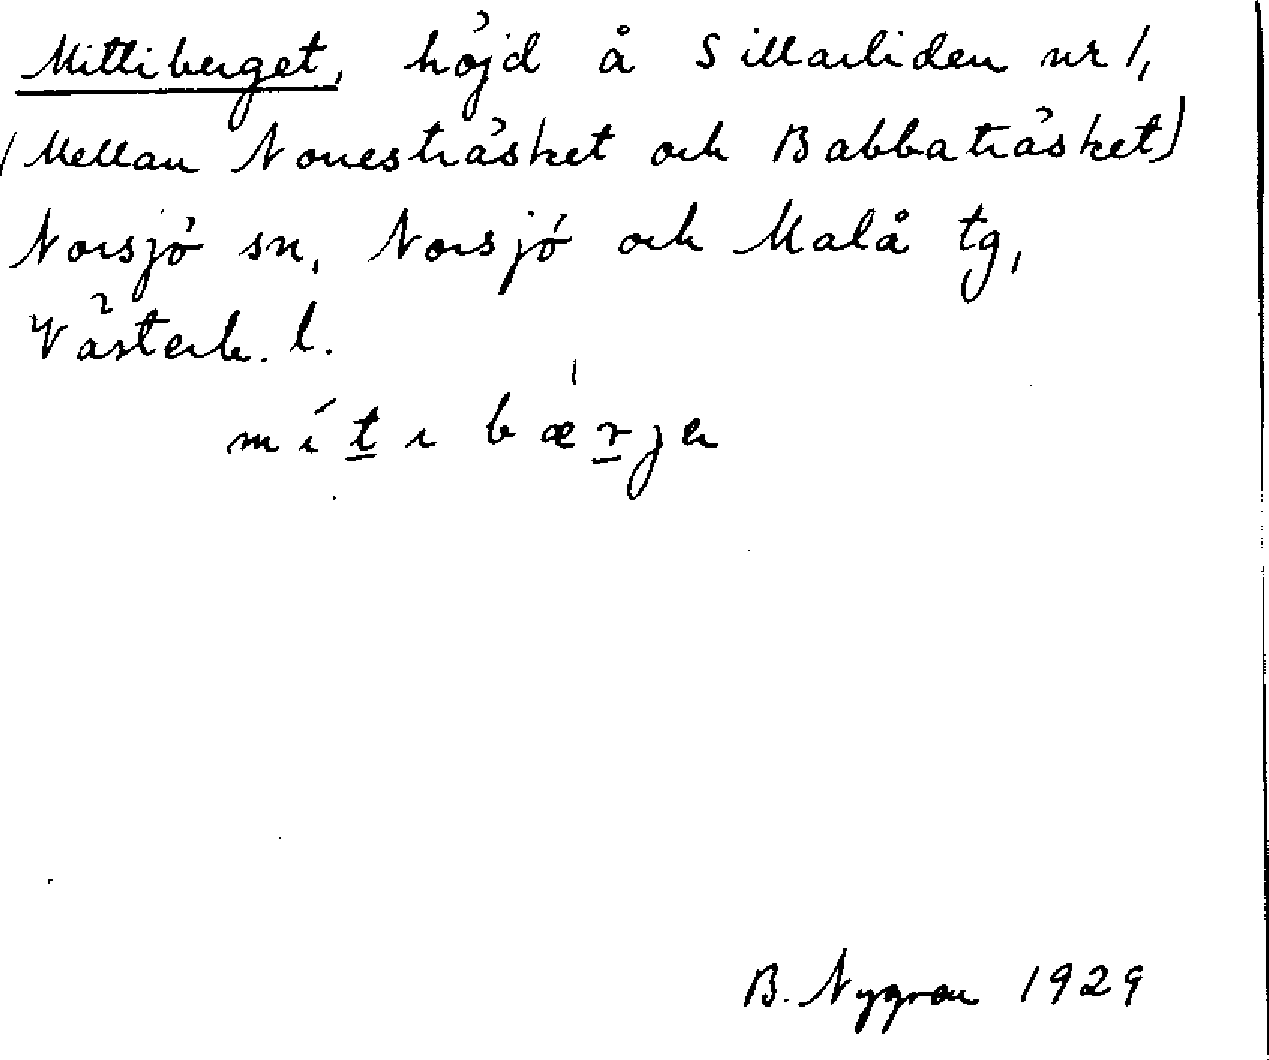 Mittiberget, höjd å Sillarliden nr 1,
(Mellan Nonesträsket och Babbaträsket)
Norsjö sn, Norsjö och Malå tg,
Västerb. l.
mítıbæ̀rjɐ
B. Nygren 1929